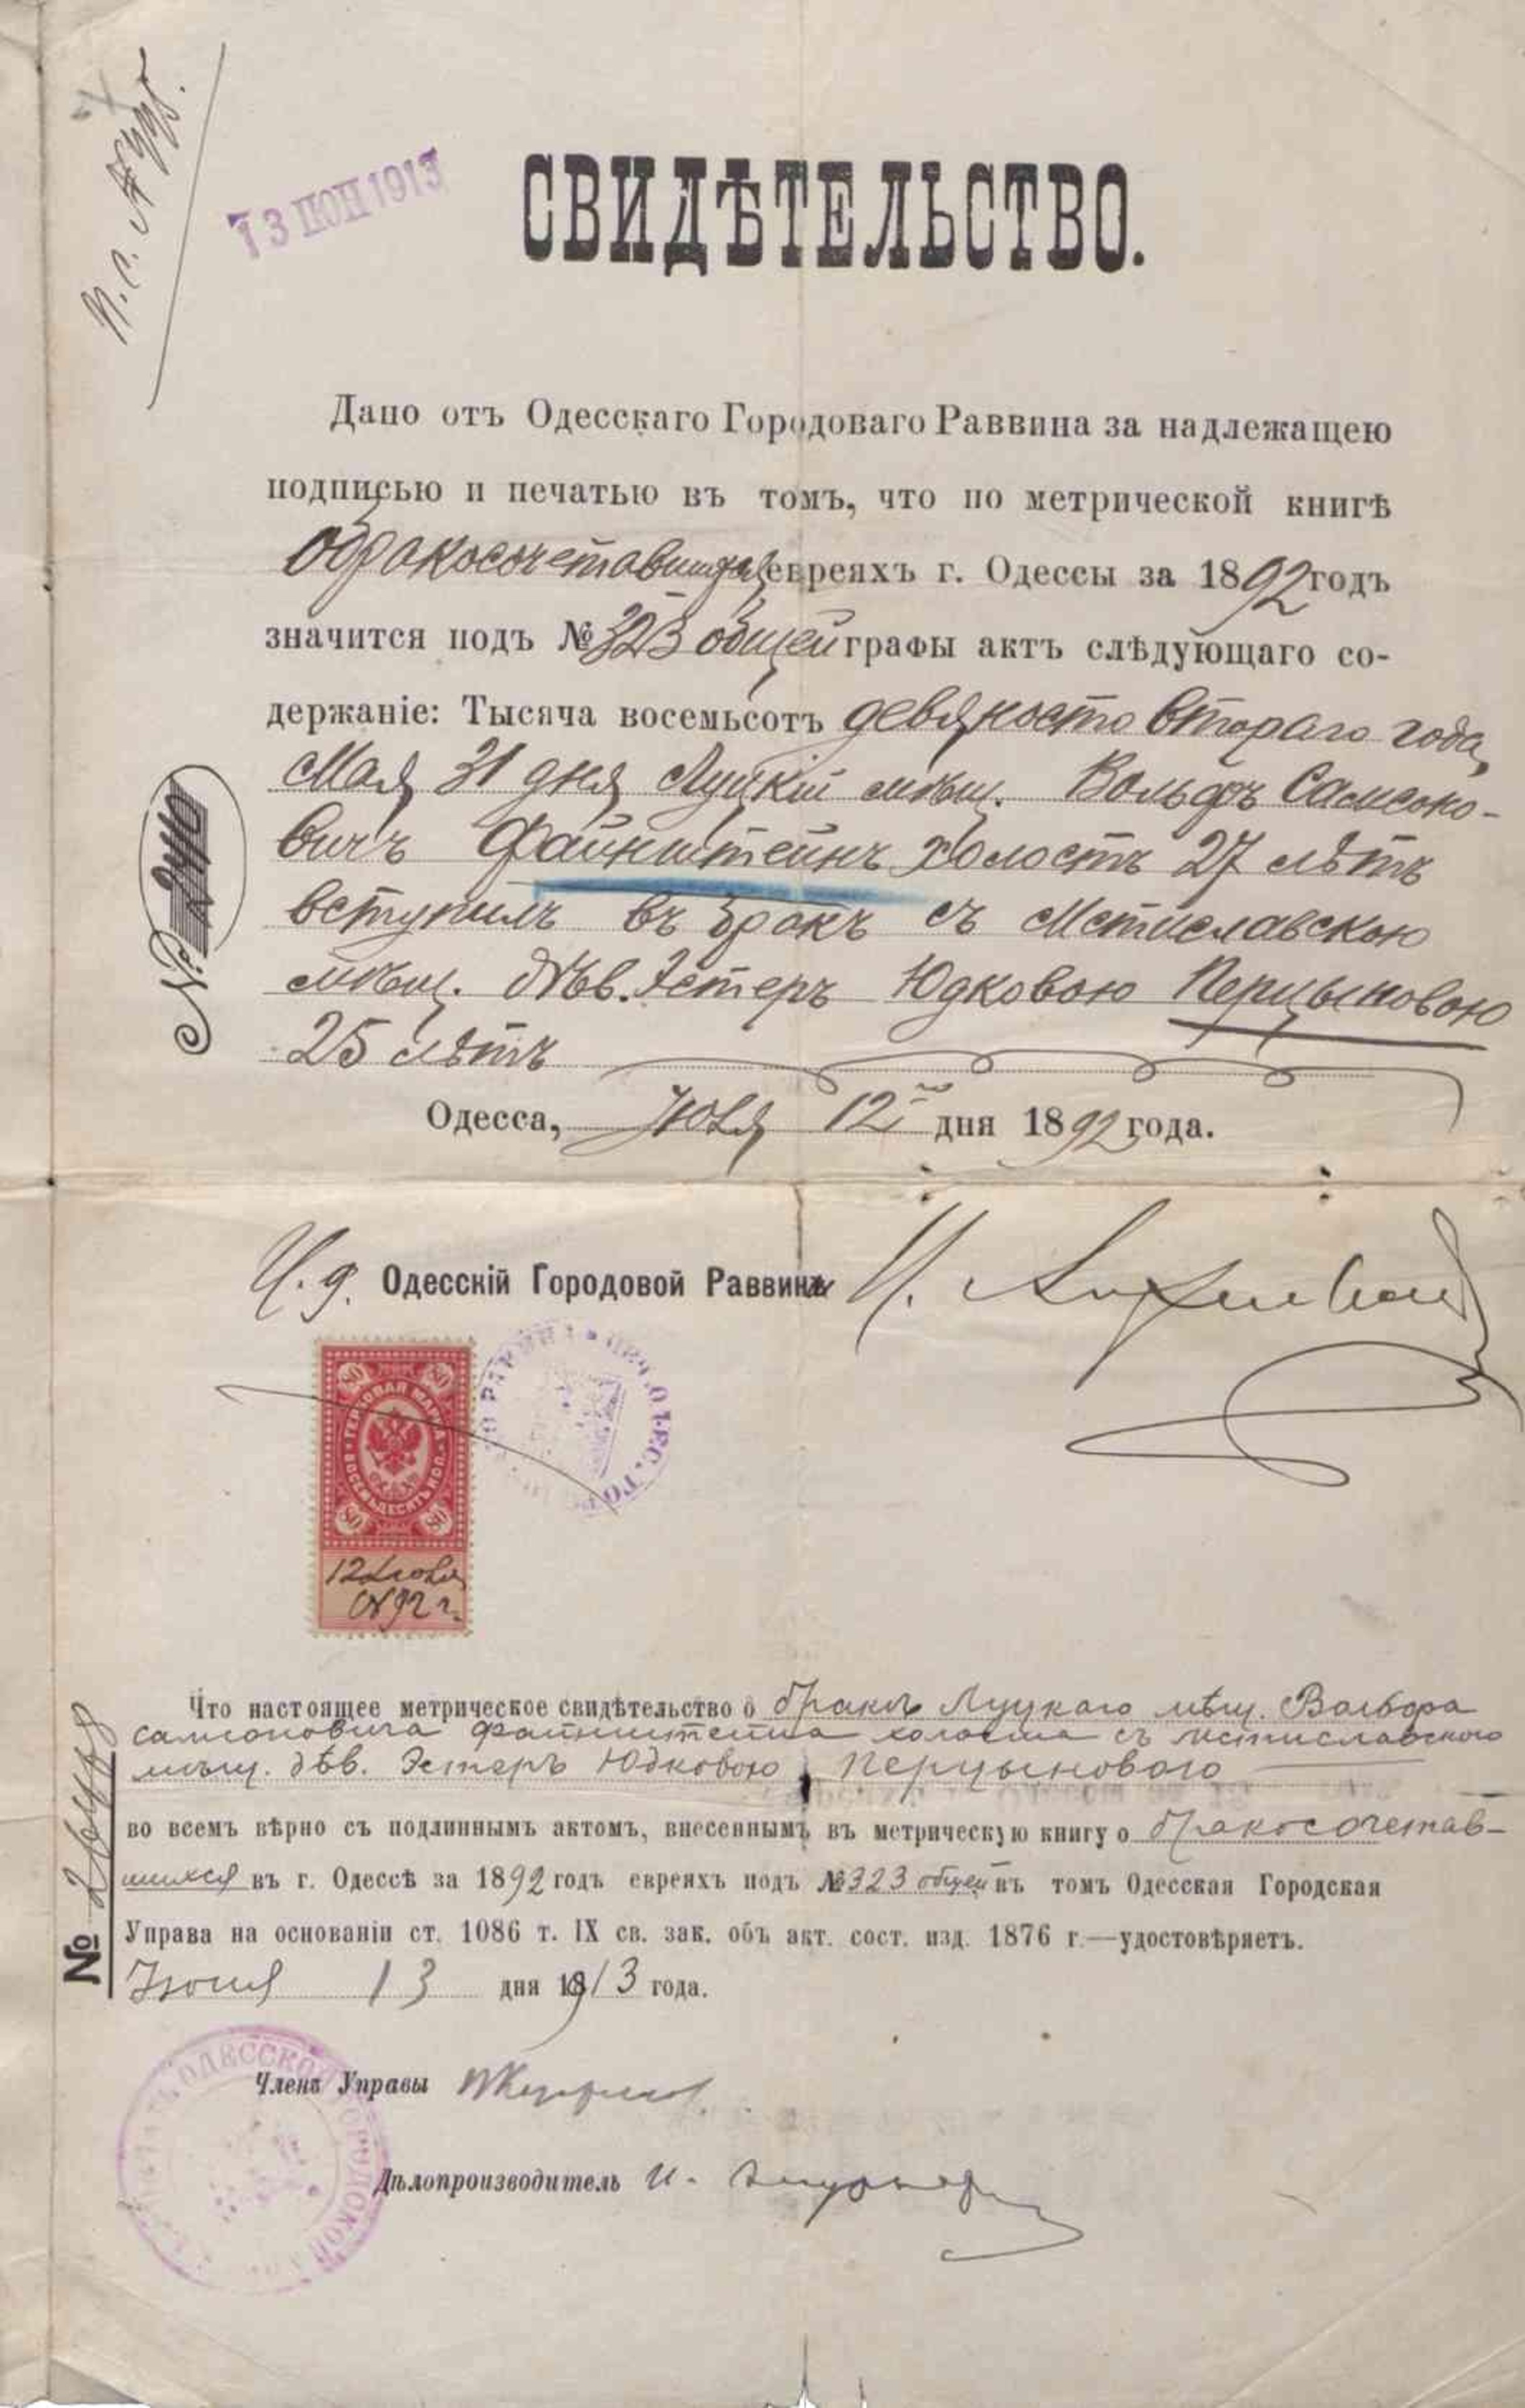 13 ІЮН 1913
СВИДѢТЕЛЬСТВО.
Дано отъ Одесскаго Городоваго Раввина за надлежащею
подписью и печатью въ томъ, что по метрической книгѣ
о бракосочетавшихся евреяхъ г. Одессы за 1892 годъ
значится подъ № 323 общей графы актъ слѣдующаго со-
держанiе: Тысяча восемьсотъ девяносто втораго года
Мая 31 дня Луцкій мѣщ. Вольфъ Самсоно-
вичъ Файнштейнъ холостъ 27 лѣтъ
вступилъ въ бракъ съ Мстиславскою
мѣщ. дѣв. Эстеръ Юдковою Перцыновою
25 лѣтъ
Одесса, Юля 12го дня 1892 года.
И. д. Одесскій Городовой Раввинъ
ГЕРБОВАЯ МАРКА
ВОСЕМЬДЕСЯТЪ КОП.
80 80
80 80
12 Июля
1892 г.
Что настоящее метрическое свидѣтельство о бракѣ Луцкаго мѣщ. Вольфа
Самсоновича Файнштейна холоста съ Мстиславского
мѣщ. дѣв. Эстеръ Юдковою Перцынового
во всемъ вѣрно съ подлиннымъ актомъ, внесеннымъ въ метрическую книгу о бракосочетав-
шихся въ г. Одессѣ за 1892 годъ евреяхъ подъ № 323 общей въ томъ Одесская Городская
Управа на основаніи ст. 1086 т. IX св. зак. объ акт. сост. изд. 1876 г.—удостовѣряетъ.
Июня 13 дня 1913 года.
№
Членъ Управы
Дѣлопроизводитель И.
ПЕЧАТЬ ОДЕССКОЙ ГОРОДСКОЙ